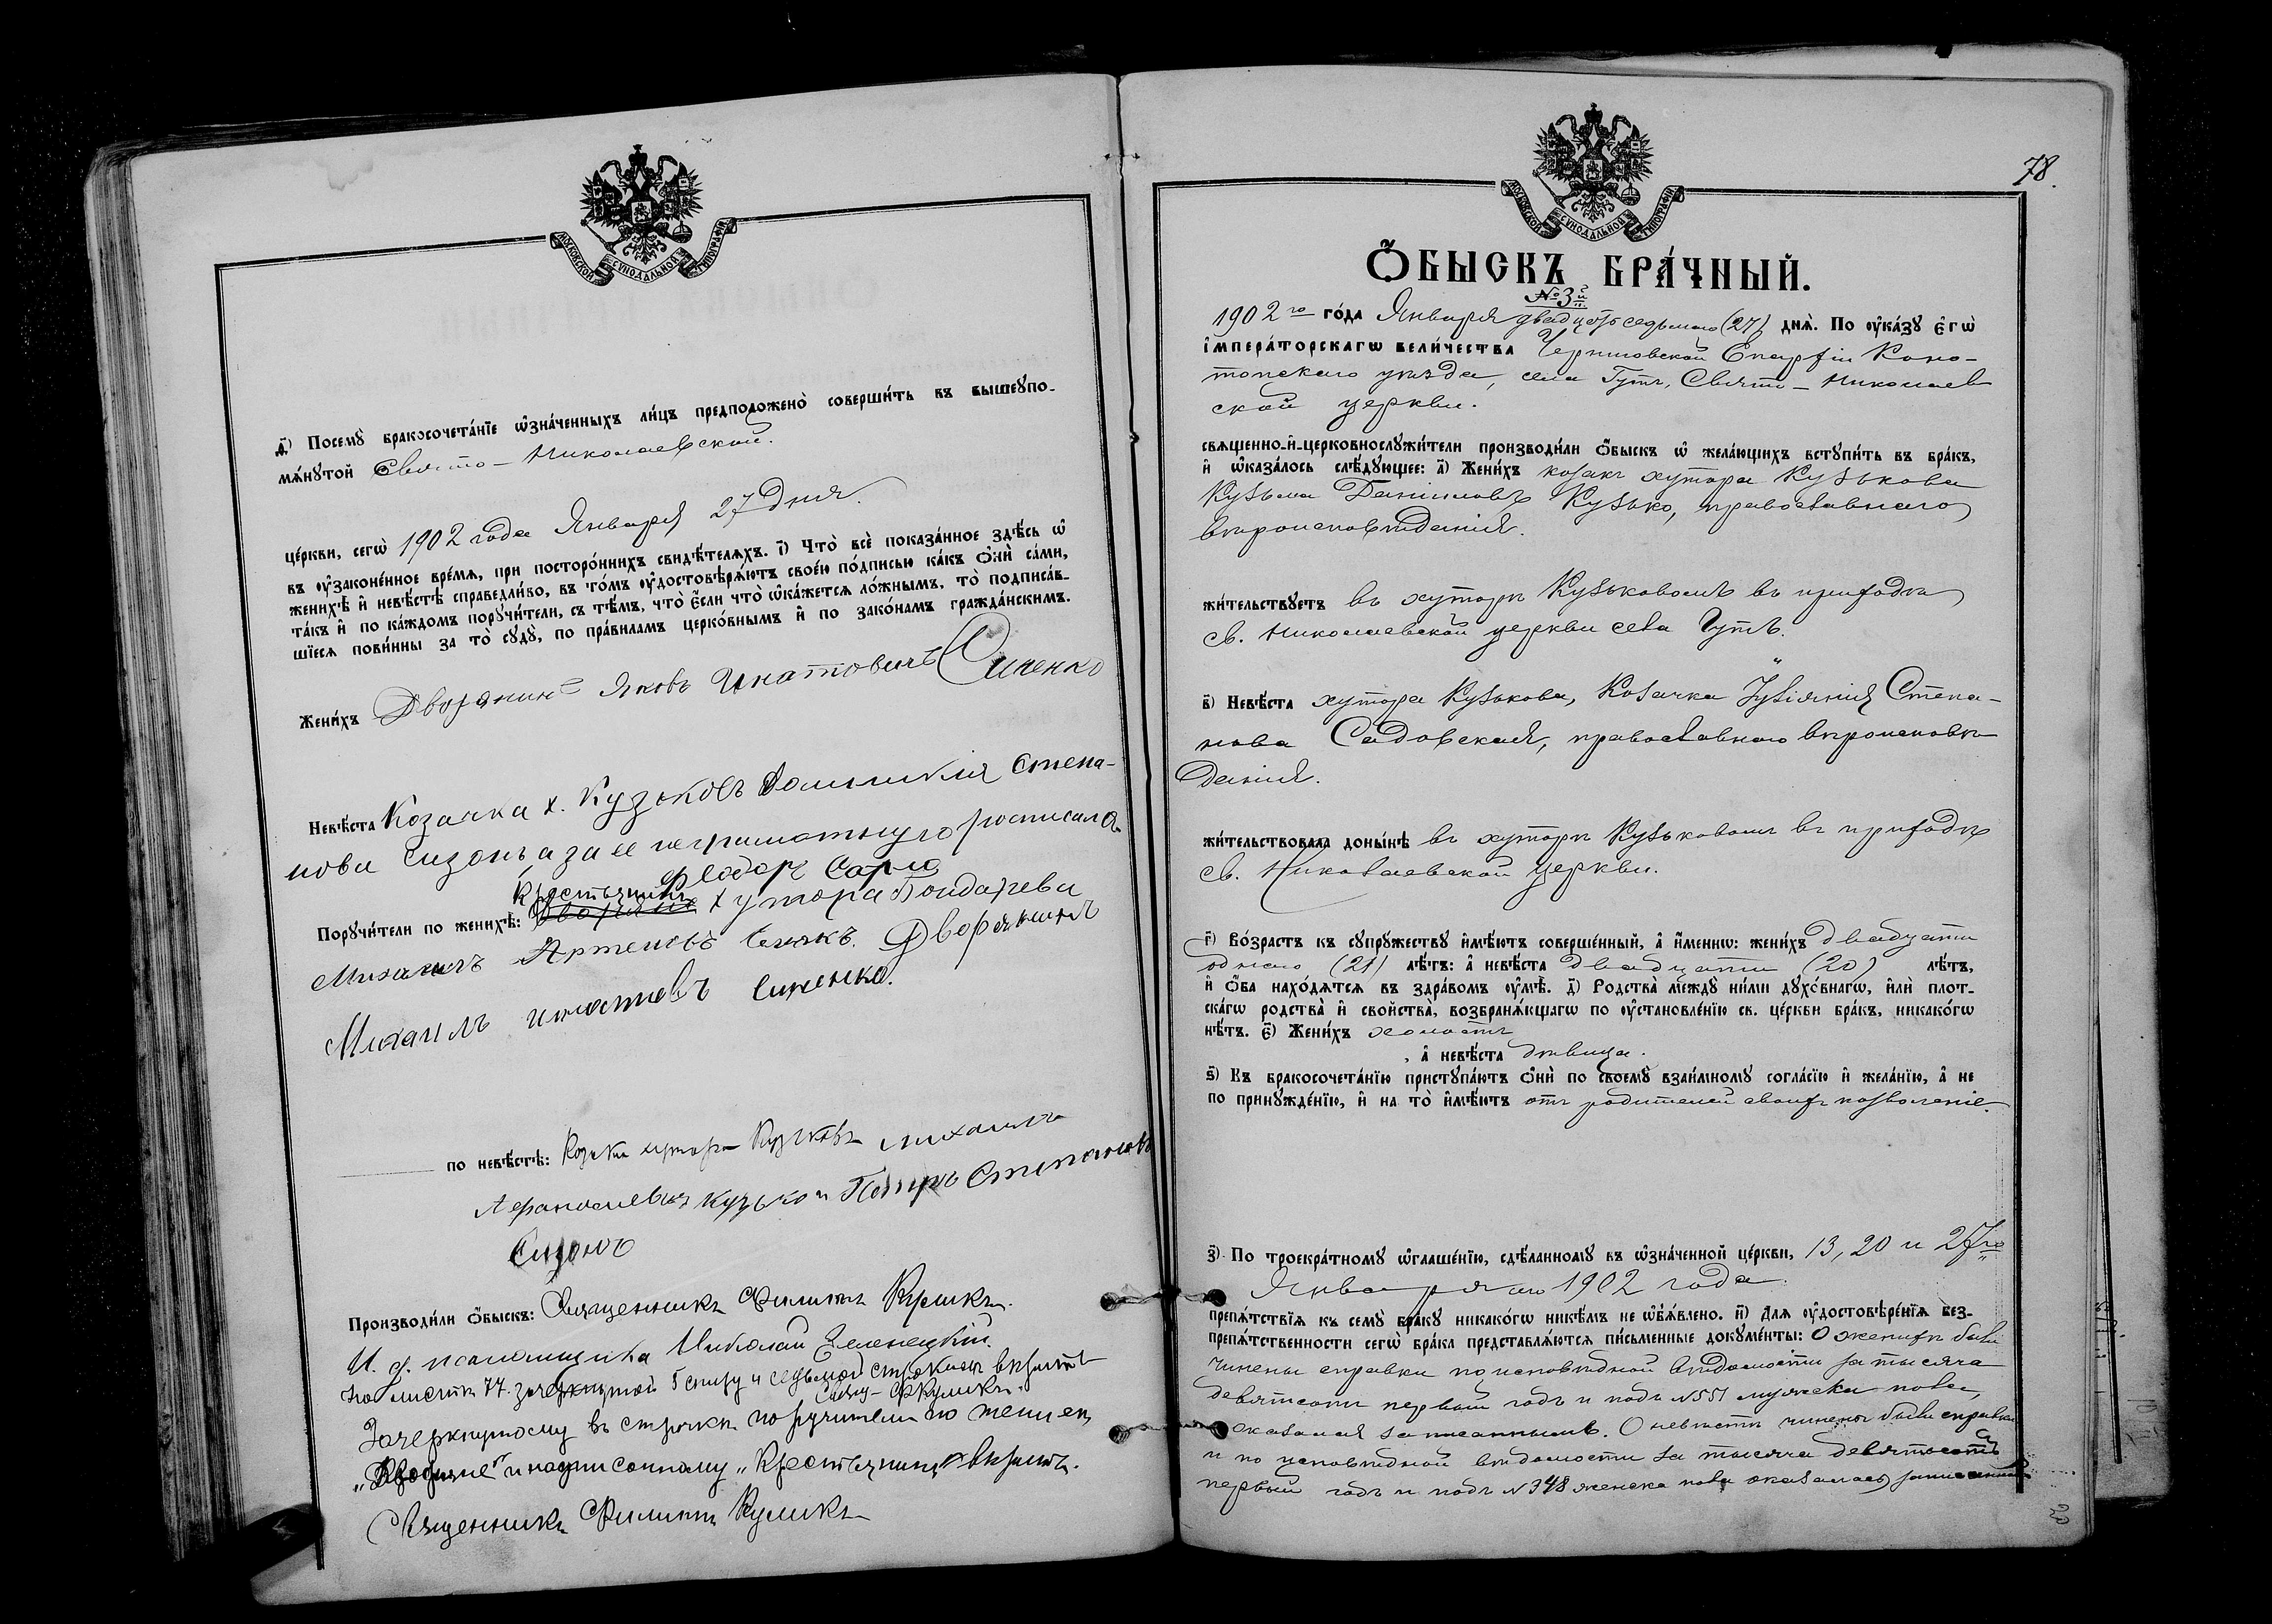 МОСКОВСКОЙ СѴНОДАЛЬНОЙ ТИПОГРАФІИ
д҃і) Посемꙋ̀ бракосочета́нїе ѡ҆зна́ченныхъ ли́цъ предположено̀ соверши́ть въ вышеꙋпо-
мѧ́нꙋтой Свято-Николаевской.
це́ркви, сегѡ̀ 1902 года Января 27 Дня.
въ ᲂу҆зако́ненное вре́мѧ, при посторо́ннихъ свидѣ́телѧхъ. і҃) Что̀ всѐ показа́нное здѣ́сь ѡ҆
женихѣ̀ и҆ невѣ́стѣ справедли́во, въ то́мъ ᲂу҆достовѣрѧ́ютъ свое́ю по́дписью ка́къ ѻ҆нѝ са́ми,
та́къ и҆ по ка́ждомъ порꙋчи́тели, съ тѣ́мъ, что̀ є҆́сли что̀ ѡ҆ка́жетсѧ ло́жнымъ, то̀ подписа́в-
шїесѧ пови́нны за то̀ сꙋдꙋ̀, по пра́виламъ церко́внымъ и҆ по зако́намъ гражда́нскимъ.
Жени́хъ Дворянинъ Яковъ Игнатовичъ Синенко
Невѣ́ста Козачка х. Кузьковъ Домникія Степа-
нова Сизонъ а за ее неграмотную росписался
Ѳеодоръ
Крестьянинъ
Порꙋчи́тели по женихѣ̀: Дворяне хутора Бондарева
Михаилъ Артемовъ Дворянинъ
Михаилъ Игнатовъ Синенко.
по невѣ́стѣ: Козаки хутора Кузькова Михаилъ
Афанасиевичъ Кузько и Петръ Степановъ
Сизонъ
Производи́ли ѻ҆́быскъ: Священникъ Филиппъ Куликъ.
И. д. псаломщика Николай Зеленецкій.
На листѣ 77 зачеркнутой снизу и седьмой строками вѣрить
Свящ. Ф Куликъ.
Зачеркнутому въ строкѣ поручители по женихѣ
„Дворяне" и надписанному „Крестьянинъ" вѣрить.
Священникъ Филиппъ Куликъ
78.
МОСКОВСКОЙ СѴНОДАЛЬНОЙ ТИПОГРАФІИ
Ѻ҆БЫСКЪ БРА́ЧНЫЙ.
№ 3й
1902го го́да Января двадцать седьмаго (27) днѧ̀. По ᲂу҆ка́зꙋ є҆гѡ̀
і҆мпера́торскагѡ вели́чества Черниговской Епархіи Коно-
топскаго уѣзда, села Гутъ, Свято-Николаев
ской церкви.
свѧщенно-и҆-церковнослꙋжи́тели производи́ли ѻ҆́быскъ ѡ҆ жела́ющихъ встꙋпи́ть въ бра́къ,
и҆ ѡ҆каза́лось слѣ́дꙋющее: а҃) Жени́хъ козакъ хутора Кузькова
Кузьма Даніиловъ Кузько, православнаго
вѣроисповѣданія.
жи́тельствꙋетъ въ хуторѣ Кузьковомъ въ приходѣ
св. Николаевской церкви села Гутъ.
в҃) Невѣ́ста хутора Кузькова, Козачка Іуліянія Степа-
нова Садовская, православнаго вѣроисповѣ
данія.
жи́тельствовала доны́нѣ въ хуторѣ Кузьковомъ въ приходѣ
св. Николаевской церкви.
г҃) Во́зрастъ къ сꙋпрꙋ́жествꙋ и҆мѣ́ютъ соверше́нный, а҆ и҆́меннѡ: жени́хъ двадцати
однаго (21) лѣ́тъ: а҆ невѣ́ста двадцати (20) лѣ́тъ,
и҆ ѻ҆́ба нахо́дѧтсѧ въ здра́вомъ ᲂу҆мѣ̀. д҃) Родства̀ мє́ждꙋ ни́ми дꙋхо́внагѡ, и҆лѝ плот-
ска́гѡ родства̀ и҆ свойства̀, возбранѧ́ющагѡ по ᲂу҆становле́нїю св. це́ркви бра́къ, никако́гѡ
нѣ́тъ. є҃) Жени́хъ холостъ
, а҆ невѣ́ста дѣвица.
ѕ҃) Къ бракосочета́нїю пристꙋпа́ютъ ѻ҆нѝ по своемꙋ̀ взаи́мномꙋ согла́сїю и҆ жела́нїю, а҆ не
по принꙋжде́нїю, и҆ на то̀ и҆мѣ́ютъ отъ родителей своихъ позволеніе.
з҃) По троекра́тномꙋ ѡ҆глаше́нїю, сдѣ́ланномꙋ въ ѡ҆зна́ченной це́ркви, 13, 20 и 27го
Января 1902 года.
препѧ́тствїѧ къ семꙋ̀ бра́кꙋ никако́гѡ никѣ́мъ не ѡ҆б̾ѧ́влено. и҃) Длѧ ᲂу҆достовѣре́нїѧ без-
препѧ́тственности сегѡ̀ бра́ка представлѧ́ютсѧ пи́сьменные докꙋме́нты: О женихѣ были
чинены справки по исповѣдной вѣдомости за тысяча
девятсотъ первый годъ и подъ №551 мужеска пола,
оказался записаннымъ. О невѣстѣ чинены были справки
и по исповѣдной вѣдомости за тысяча девятьсотъ
первый годъ и подъ №348 женска пола оказалась записанной